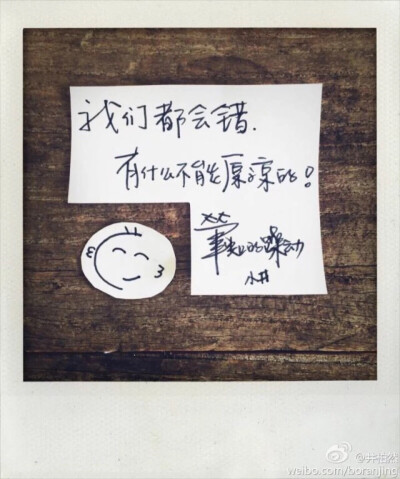 我们都会错.
有什么不能原谅的!
笔尖上的躁动
小井
@井柏然
weibo.com/boranjing